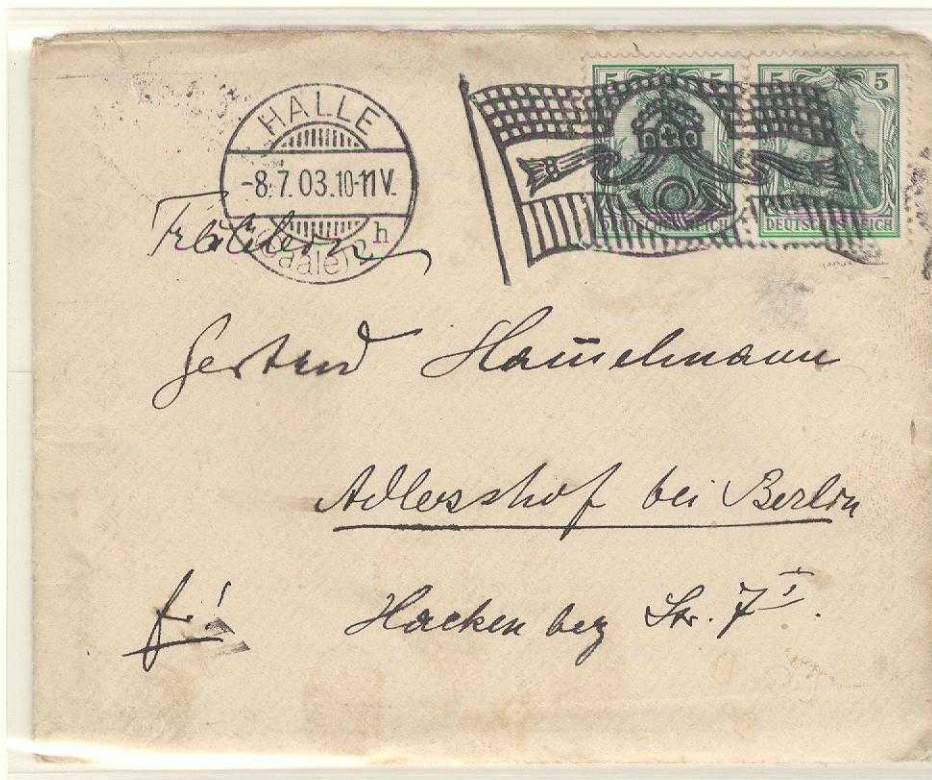 HALLE
-8.7.03.10-11V.
(Saale) 2 h
5 5 5 5
DEUTSCHES REICH DEUTSCHES REICH
Fräulein
Gertrud Hamelmann
Adlershof bei Berlin
fr! Hackenberg Str. 7 I.